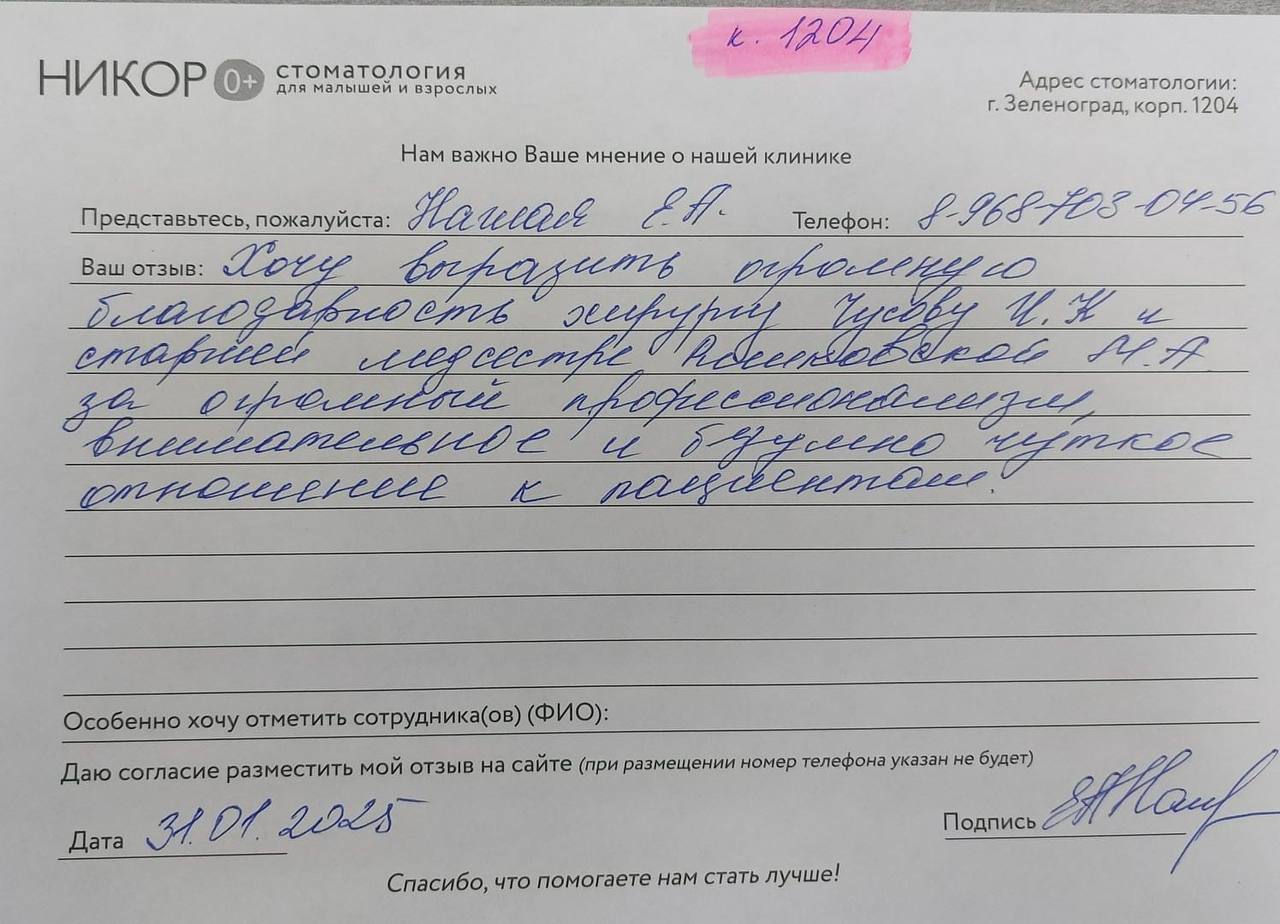 к. 1204
НИКОР 0+ СТОМАТОЛОГИЯ
ДЛЯ МАЛЫШЕЙ И ВЗРОСЛЫХ
Адрес стоматологии:
г. Зеленоград, корп. 1204
Нам важно Ваше мнение о нашей клинике
Представьтесь, пожалуйста: Е.А. Телефон: 8-968-703-04-56
Ваш отзыв: Хочу выразить огромную
благодарность хирургу Чусову И.К и
старшей медсестре М.А
за огромный профессионализм,
внимательное и безумно чуткое
отношение к пациентам.
Особенно хочу отметить сотрудника(ов) (ФИО):
Даю согласие разместить мой отзыв на сайте (при размещении номер телефона указан не будет)
Дата 31.01.2025
Подпись
Спасибо, что помогаете нам стать лучше!